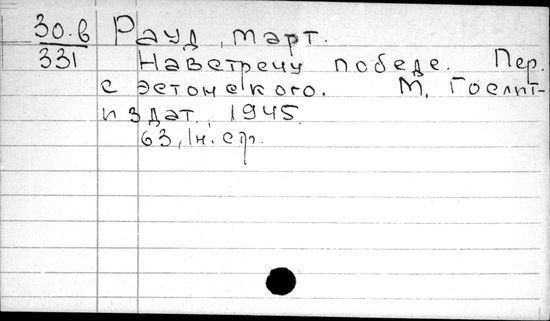 30.в Рауд, Март.
331 Навстречу победе. Пер.
с эстонского. М. Гослит-
издат, 1945.
63, 1н. стр.